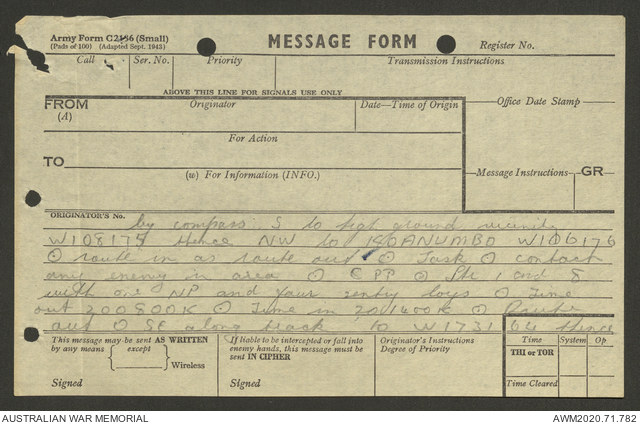 Army Form C2136 (Small)
(Pads of 100) (Adapted Sept. 1943)
MESSAGE FORM
Register No.
Call Ser. No. Priority Transmission Instructions
ABOVE THIS LINE FOR SIGNALS USE ONLY
FROM Originator Date—Time of Origin Office Date Stamp
(A)
For Action
TO
(w) For Information (INFO.) Message Instructions GR
ORIGINATOR'S No.
by compass S to high ground vicinity
W108174 thence NW to W106176
⊙ route in as route out ⊙ Task ⊙ contact
any enemy in area ⊙ 1 and 8
with one NP and four sentry boys ⊙ Time
out 200800K ⊙ Time in 201400K ⊙ Route
out ⊙ SE along track to W173164 thence
This message may be sent AS WRITTEN
by any means except
Wireless
Signed
If liable to be intercepted or fall into
enemy hands, this message must be
sent IN CIPHER
Signed
Originator's Instructions
Degree of Priority
Time System Op
THI or TOR
Time Cleared
AUSTRALIAN WAR MEMORIAL AWM2020.71.782